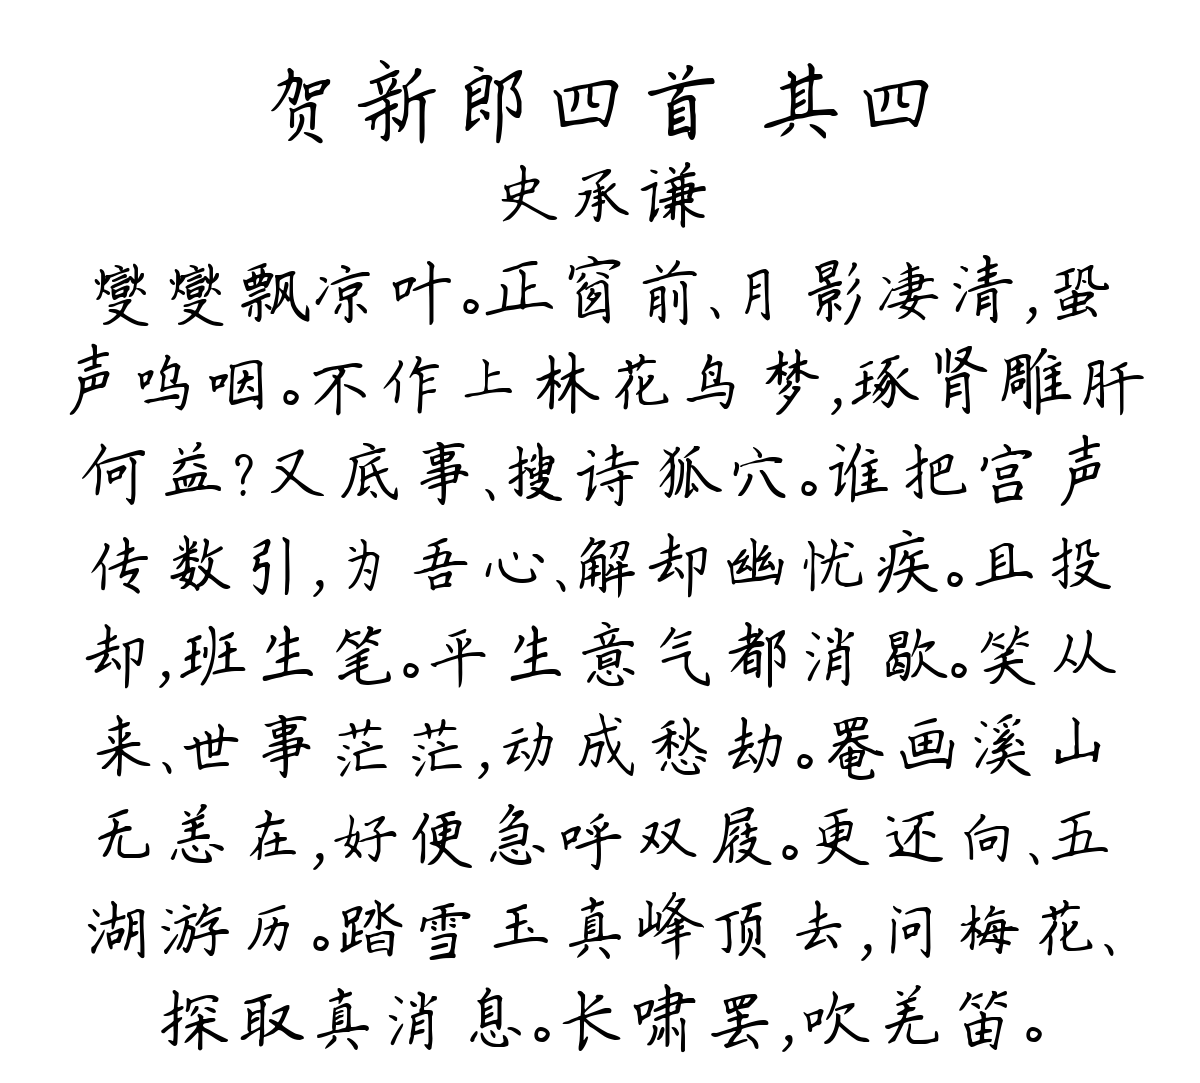 贺新郎四首 其四
史承谦
燮燮飘凉叶。正窗前、月影凄清,蛩
声呜咽。不作上林花鸟梦,琢肾雕肝
何益?又底事、搜诗狐穴。谁把宫声
传数引,为吾心、解却幽忧疾。且投
却,班生笔。平生意气都消歇。笑从
来、世事茫茫,动成愁劫。罨画溪山
无恙在,好便急呼双屐。更还向、五
湖游历。踏雪玉真峰顶去,问梅花、
探取真消息。长啸罢,吹羌笛。